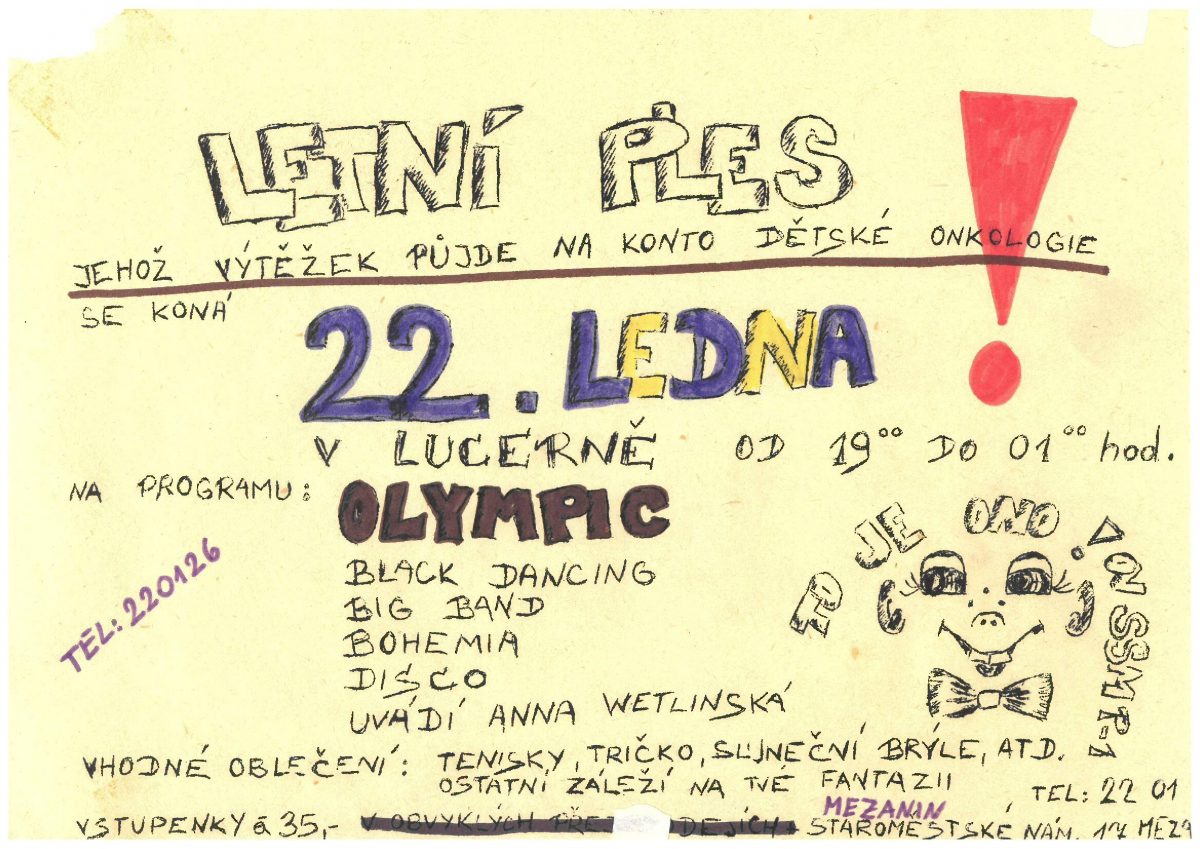 LETNÍ PLES
JEHOŽ VÝTĚŽEK PŮJDE NA KONTO DĚTSKÉ ONKOLOGIE
SE KONÁ
22. LEDNA
V LUCERNĚ OD 19⁰⁰ DO 01⁰⁰ hod.
NA PROGRAMU: OLYMPIC
BLACK DANCING
BIG BAND
BOHEMIA
DISCO
UVÁDÍ ANNA WETLINSKÁ
TEL: 220126
TO JE ONO!
OV SSM P-1
VHODNÉ OBLEČENÍ: TENISKY, TRIČKO, SLUNEČNÍ BRÝLE, ATD.
OSTATNÍ ZÁLEŽÍ NA TVÉ FANTAZII
MEZANIN , TEL: 22 01
VSTUPENKY á 35,- V OBVYKLÝCH DEJÍCH + STAROMĚSTSKÉ NÁM. 17 MEZA